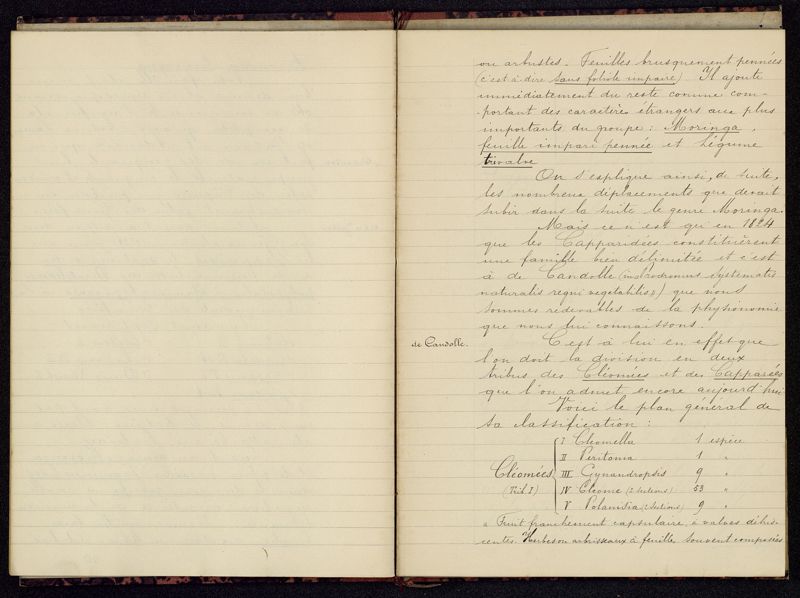 ou arbustes. Feuilles brusquement pennées
(c'est à dire sans foliole impaire) Il ajoute
immédiatement du reste comme com-
-portant des caractères étrangers aux plus
importants du groupe : Moringa,
feuille impari pennée et légume
trivalve
On s'explique ainsi, de suite,
les nombreux déplacements que devait
subir dans la suite le genre Moringa.
Mais ce n'est qu'en 1824
que les Capparidées constituèrent
une famille bien délimitée et c'est
à de Candolle (in Prodromus Systematis
naturalis regni vegetabilis) que nous
sommes redevables de la physionomie
que nous lui connaissons.
de Candolle.
C'est à lui en effet que
l'on doit la division en deux
tribus des Cléomées et des Capparées
que l'on admet encore aujourd'hui
Voici le plan général de
sa classification :
I Cleomella 1 espèce
II Peritoma 1 "
Cléomées III Gynandropsis 9 "
(Trib. I) IV Cleome (2 sections) 53 "
V Polanisia (2 sections) 9 "
" Fruit franchement capsulaire, à valves déhis-
centes. Herbes ou arbrisseaux à feuilles souvent composées